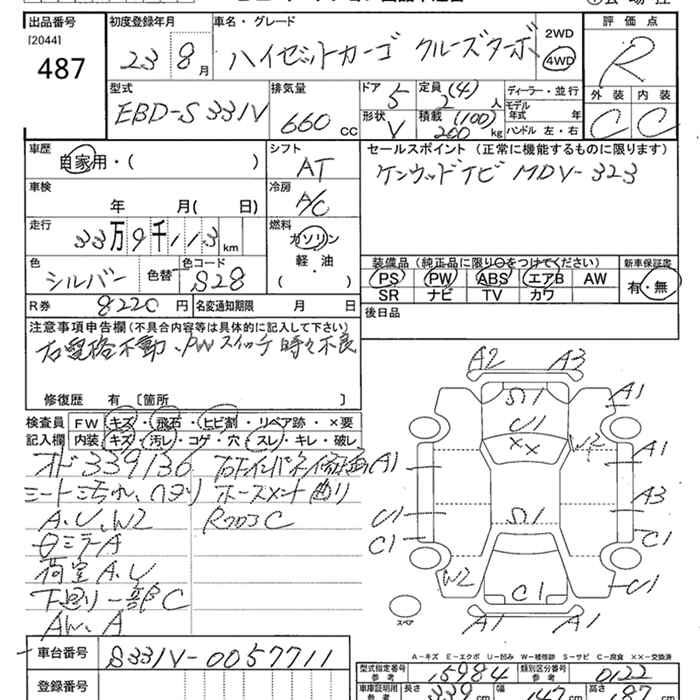 出品番号
[2044]
487
初度登録年月
23 8月
車名・グレード
ハイゼットカーゴ クルーズターボ
2WD
4WD
評価点
R
外装 内装
C C
型式
EBD-S331V
排気量
660 cc
ドア 5
形状 V
定員 (4)
2 人
積載 (100)
200 kg
ディーラー・並行
モデル
年式 年
ハンドル 左・右
車歴
自家用・( )
シフト
AT
セールスポイント (正常に機能するものに限ります)
ケンウッドナビ MDV-323
車検
年 月( 日)
冷房
A/C
走行
33万9千113km
燃料
ガソリン
軽・油
( )
色
シルバー
色替
色コード
S28
装備品(純正品に限り○をつけてください)
新車保証書
PS PW ABS エアB AW
SR ナビ TV カワ
有・無
R券 8220 円
名変通知期限 月 日
後日品
注意事項申告欄(不具合内容等は具体的に記入して下さい)
右電格不動、PWスイッチ時々不良
修復歴 有 [箇所 ]
検査員
記入欄
FW キズ・飛石・ヒビ割・リペア跡・×要
内装 キズ・汚レ・コゲ・穴・スレ・キレ・破レ
オド339136
シート汚れ、ヘタリ
A、U、W2
白ミラーA
荷室A、U
下廻り一部C
AW、A
コーナーメント曲り
A2 A3
A1
U1
W2
A1
A1
A3
U1
C1
C1
W2
C1
U1
A1 A1
スペア
A-キズ E-エクボ U-凹み W-補修跡 S-サビ C-腐食 ××-交換済
車台番号
S331V-0057711
登録番号
型式指定番号
参考
15984
類別区分番号
参考
0122
車庫証明用
参考
長さ 339 cm
幅 147 cm
高さ 187 cm